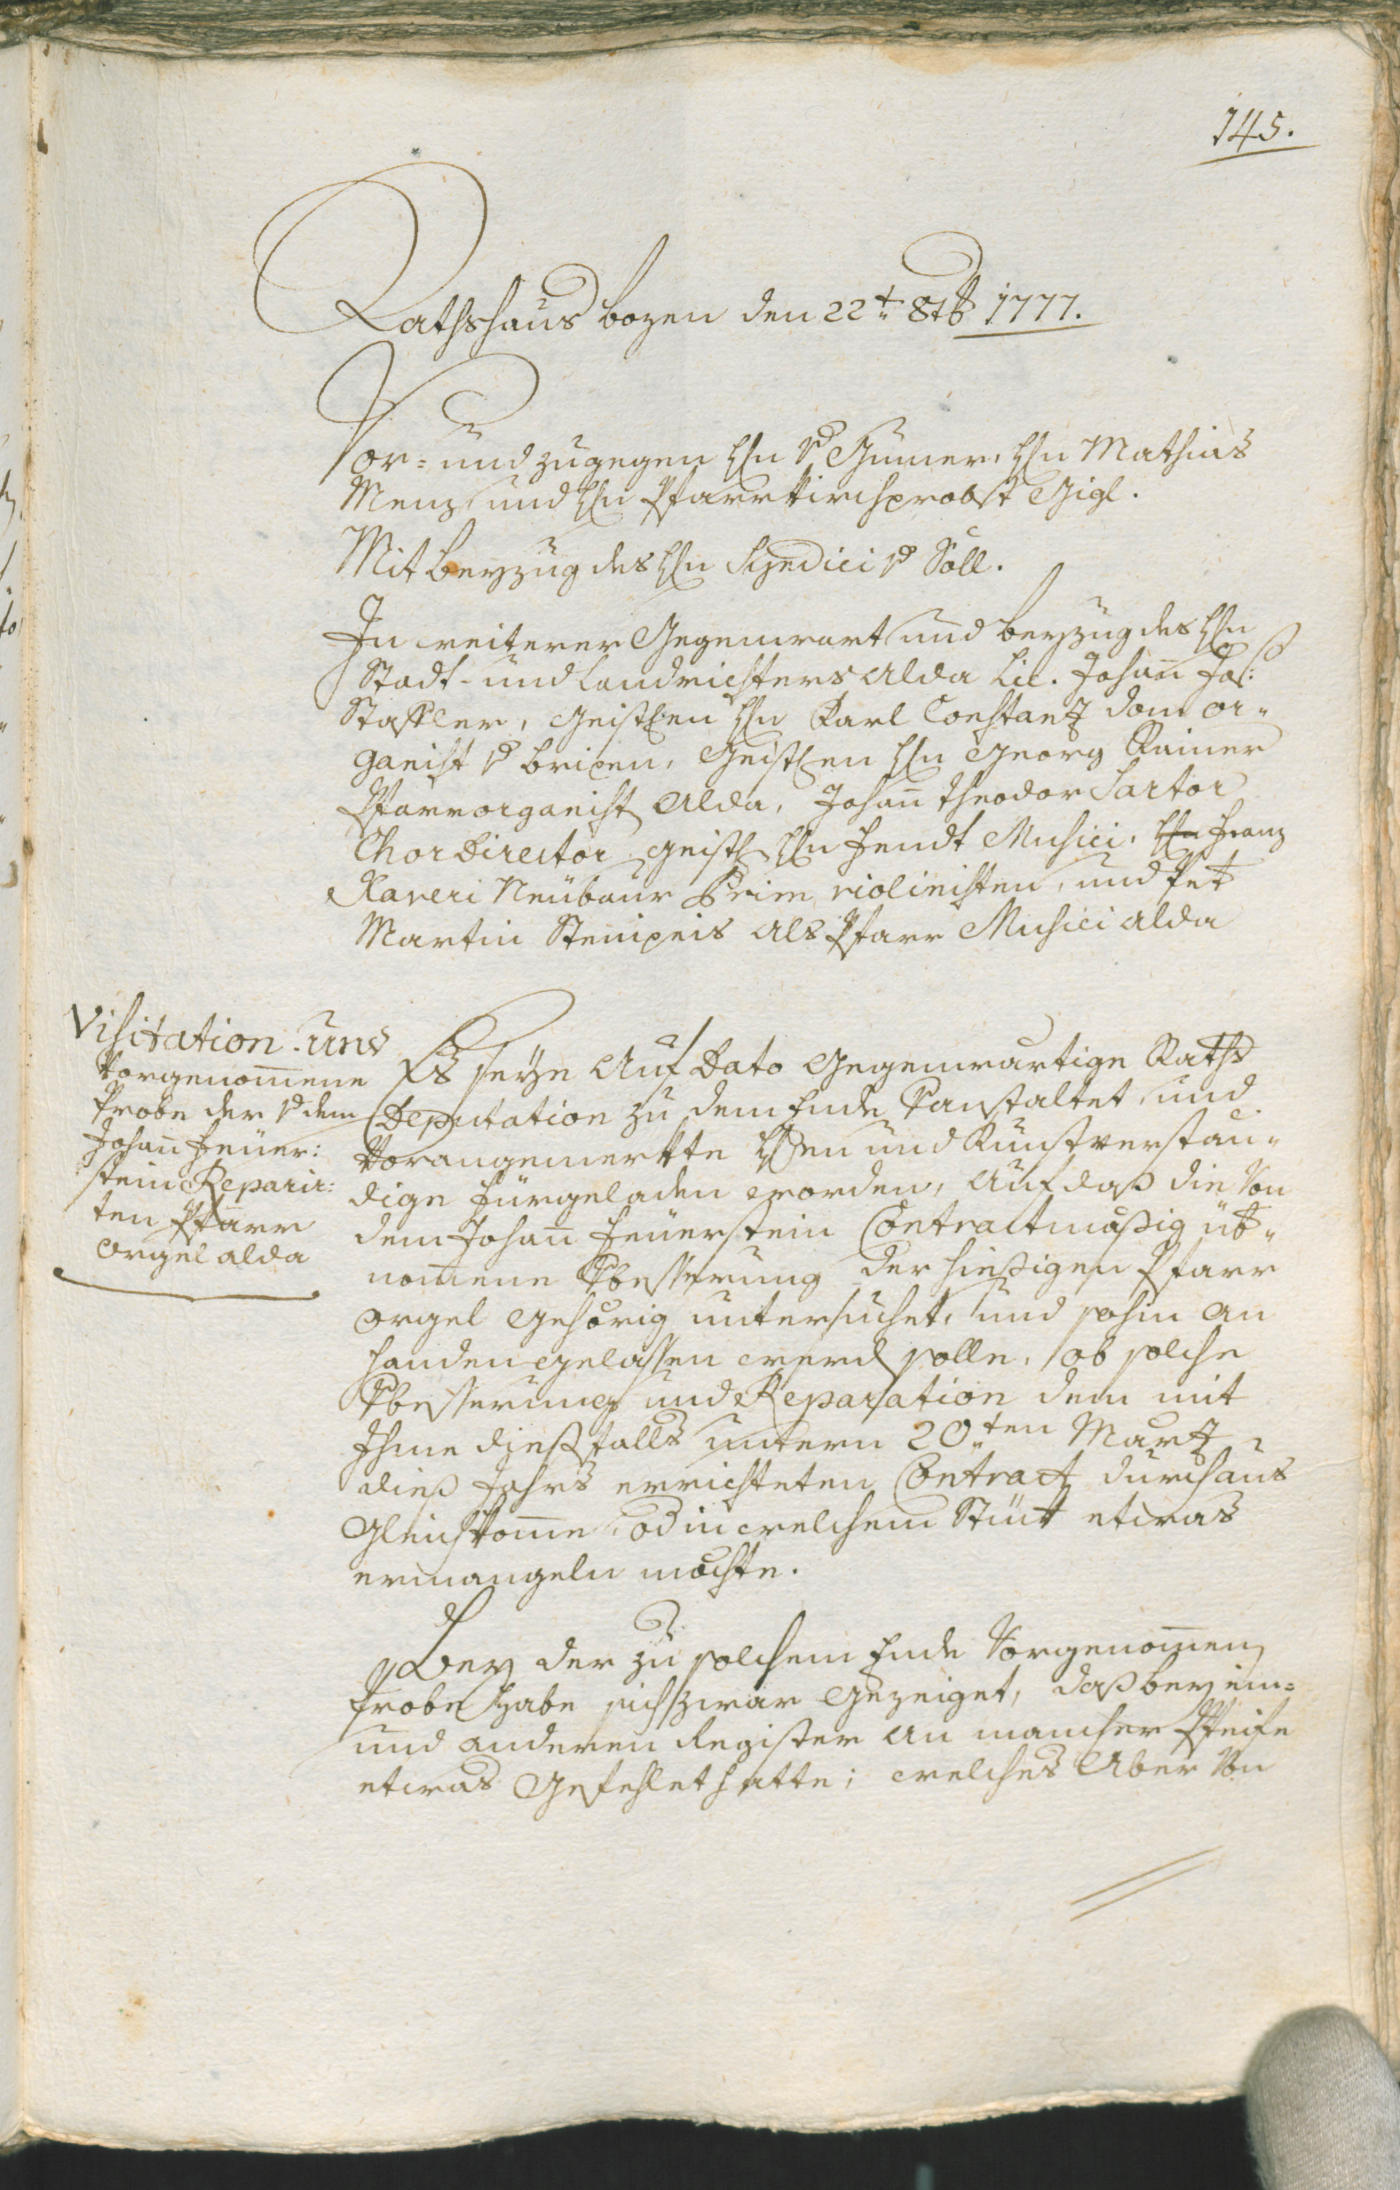 145.
Rathshaus bozen den 22t. 8tb 1777.
Vor- und zugegen H̃n v Gumer, H̃n Mathias
Menz und H̃n Pfarrkirchprobst Gigl.
Mit beyzug des H̃n Syndici v Söll.
In weiterer Gegenwart und beyzug des H̃n
Stadt- und Landrichters alda Lic. Johañ Jos:
Staffler, Geistlen H̃n Karl Constantz dom or-
ganist v brixen, Geistlen H̃n Georg Rainer
Pfarrorganist alda, Johañ theodor Sartor
Chor Director, geistl H̃n Fendt Musici, H̃n Franz
Xaveri Neubaur Prim violinisten, und Pet
Martin als Pfarr Musici alda
Visitation und
vorgenom̃ene
Probe der v dem
Johañ Feuer:
stein Reparir:
ten Pfarr
orgel alda
Es seye auf Dato gegenwartige Raths
Deputation zu dem Ende Vanstaltet und
Vorangemerkte H̃en und Kunstverstan-
dige fürgeladen worden, auf daß die von
dem Johañ Feuerstein Contractmäßig üb-
nom̃ene Vbesserung der hießigen Pfarr
orgel gehörig untersuchet, und sohin an
handen gelassen werd solle, ob solche
Vbesserung und Reparation dem mit
Ihme diesfalls untern 20.ten Martz
dieß Jahrs errichteten Contract durchaus
Gleichkom̃e, od in welchem Stuk etwas
ermangeln mochte.
Bey der zu solchem Ende Vorgenom̃en
Probe habe sich zwar gezeiget, daß bey ein-
und anderen Register an mancher Pfeife
etwas gefehlet hatte; welches aber von